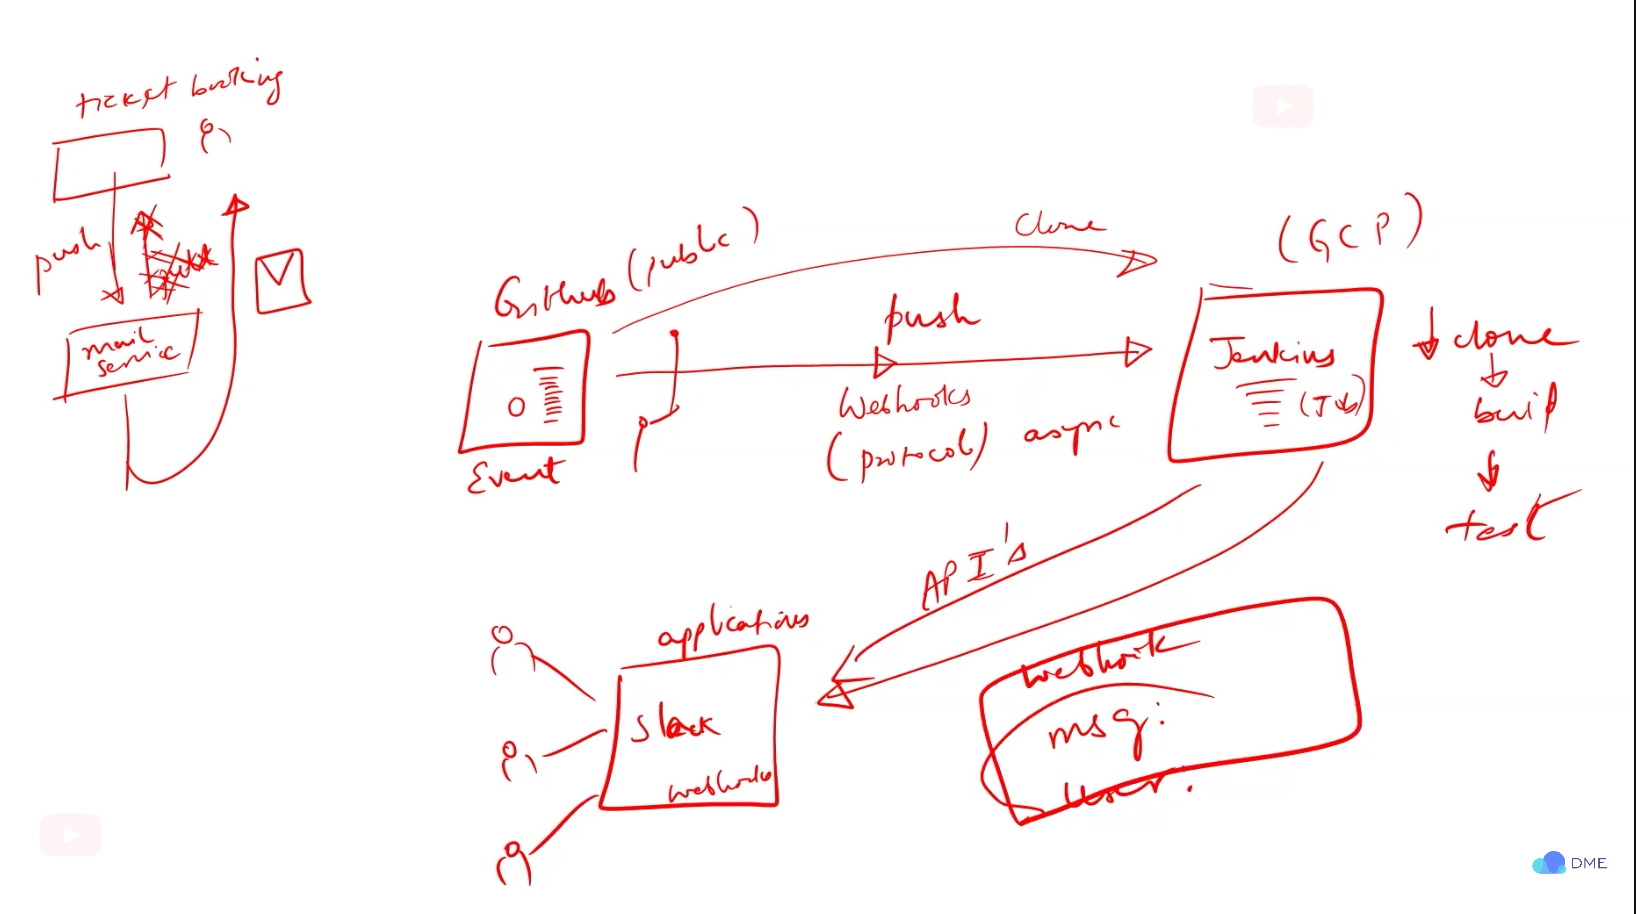 ticket booking
push
mail
service
Github (public)
Event
Clone
push
Webhooks
(protocol) async
(GCP)
Jenkins
(Job)
clone
build
test
API's
applications
Slack
webhooks
webhook
msg:
User:
DME